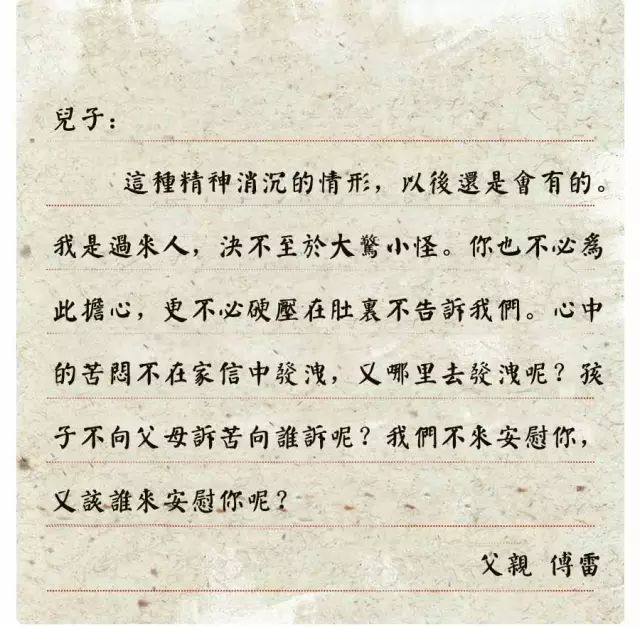 兒子：
這種精神消沉的情形，以後還是會有的。
我是過來人，決不至於大驚小怪。你也不必為
此擔心，更不必硬壓在肚裏不告訴我們。心中
的苦悶不在家信中發洩，又哪里去發洩呢？孩
子不向父母訴苦向誰訴呢？我們不來安慰你，
又該誰來安慰你呢？
父親 傅雷